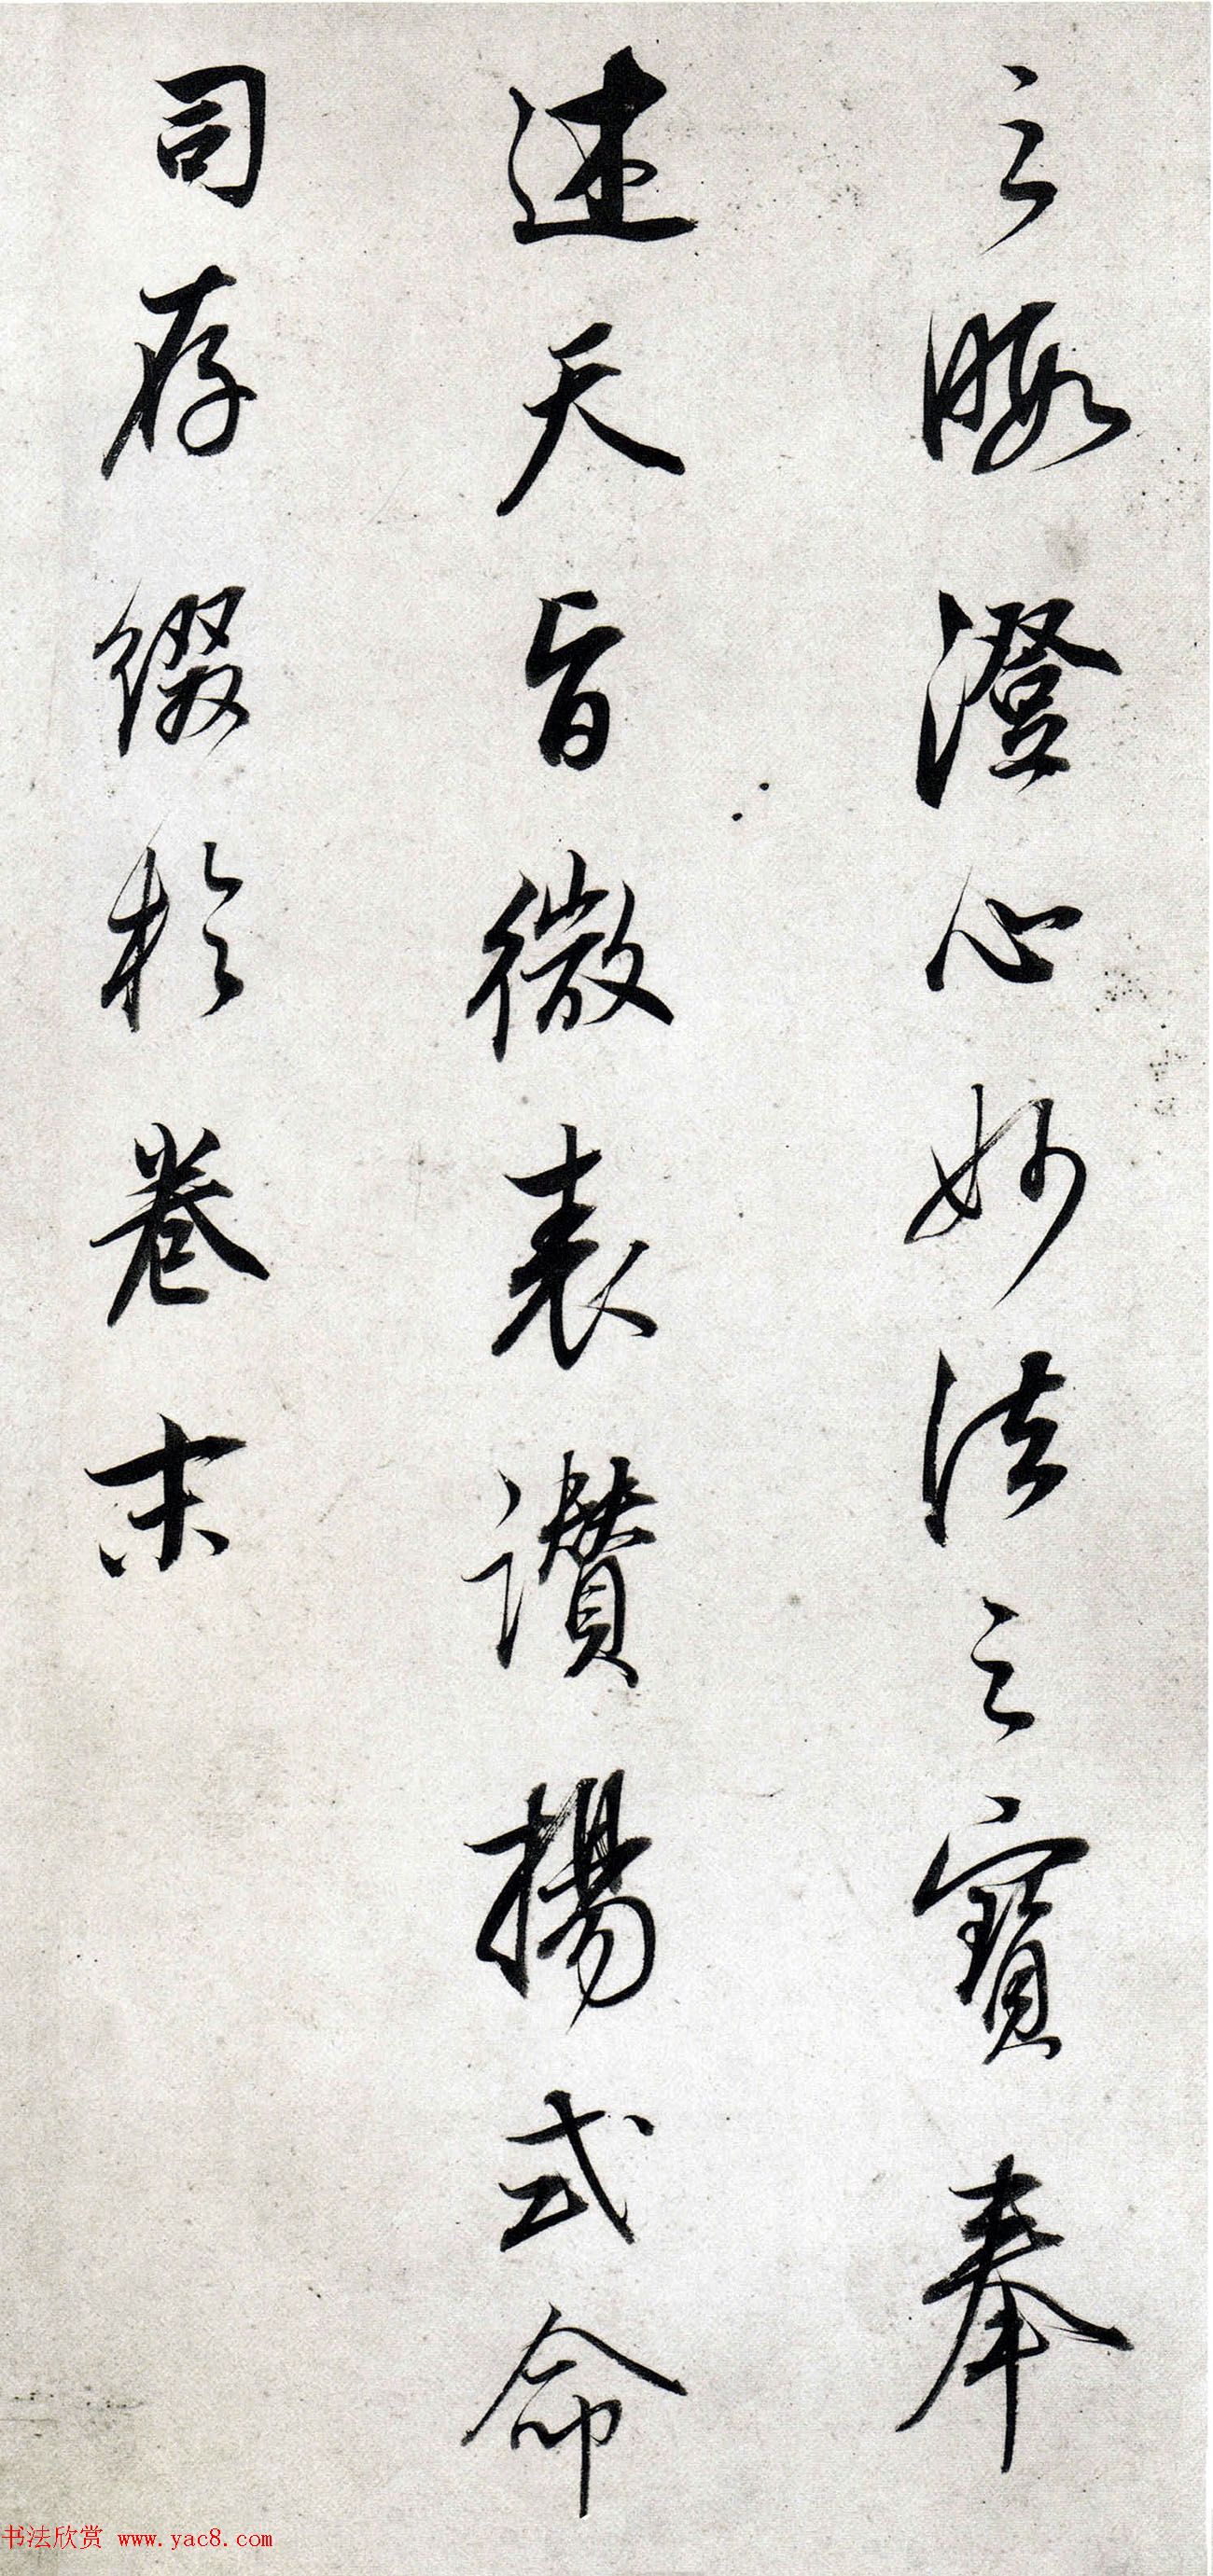 之暇澄心妙法之寶奉
述天旨微表讃揚式命
司存綴於卷末
书法欣赏 www.yac8.com